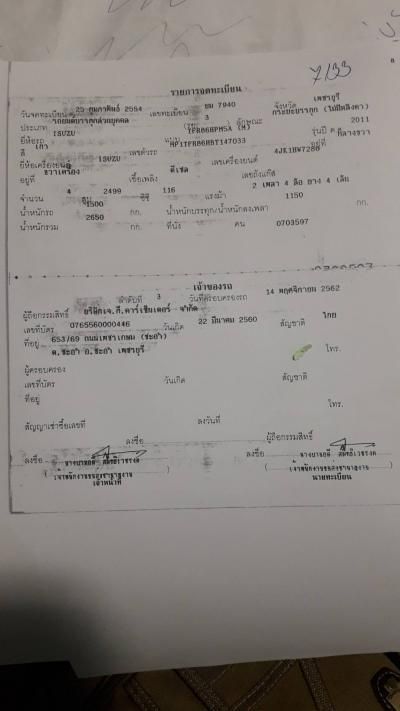 7/33
รายการจดทะเบียน
วันจดทะเบียน 25 กุมภาพันธ์ 2554 เลขทะเบียน บม 7940 จังหวัด เพชรบุรี
ประเภท รถยนต์บรรทุกส่วนบุคคล (รย. 3 ลักษณะ กระบะบรรทุก (ไม่มีหลังคา)
ยี่ห้อรถ ISUZU แบบ TFR86HPM5A (M) รุ่นปี ค 2011
สี เทา เลขตัวรถ MP1TFR86HBT147033 อยู่ที่
ยี่ห้อเครื่องยนต์ ISUZU เลขเครื่องยนต์ 4JK1HV7280
อยู่ที่ ขวาเครื่อง เชื้อเพลิง ดีเซล เลขถังแก๊ส
จำนวน 4 สูบ 2499 ซีซี 116 แรงม้า 2 เพลา 4 ล้อ ยาง 4 เส้น
น้ำหนักรถ 1500 กก. น้ำหนักบรรทุก/น้ำหนักลงเพลา 1150 กก.
น้ำหนักรวม 2650 กก. ที่นั่ง คน 0703597
เจ้าของรถ
ลำดับที่ 3 วันที่ครอบครองรถ 14 พฤศจิกายน 2562
ผู้ถือกรรมสิทธิ์ บริษัทเจ.ที.คาร์เซ็นเตอร์ จำกัด
เลขที่บัตร 0765560000446 วันเกิด 22 มีนาคม 2560 สัญชาติ ไทย
ที่อยู่ 653/69 ถนนเพชรเกษม (ชะอำ)
ต.ชะอำ อ.ชะอำ เพชรบุรี โทร.
ผู้ครอบครอง
เลขที่บัตร วันเกิด สัญชาติ
ที่อยู่
โทร.
สัญญาเช่าซื้อเลขที่ ลงวันที่
ลงชื่อ ผู้ถือกรรมสิทธิ์
ลงชื่อ ลงชื่อ
เจ้าหน้าที่ นายทะเบียน